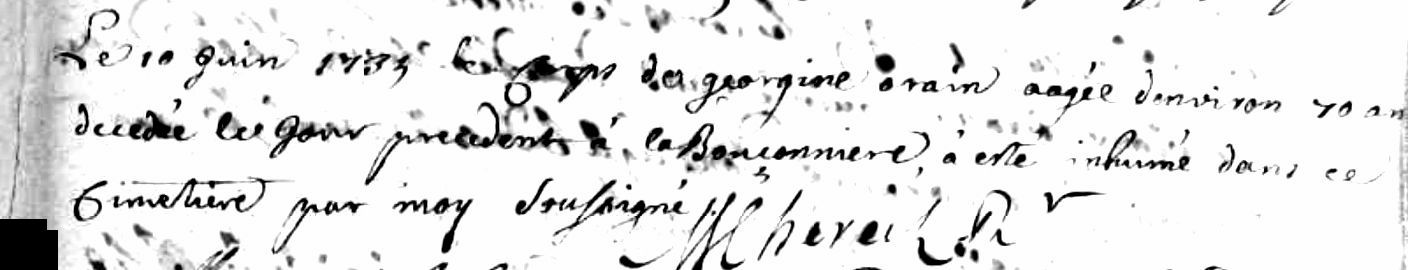 Le 10 juin 1735 le corps de georgine orain aagée denviron 70 an
decedée le jour precedent à la Bouçonniere, à esté inhumé dans ce
Cimetiere par moy Soussigné J Chereil Rr